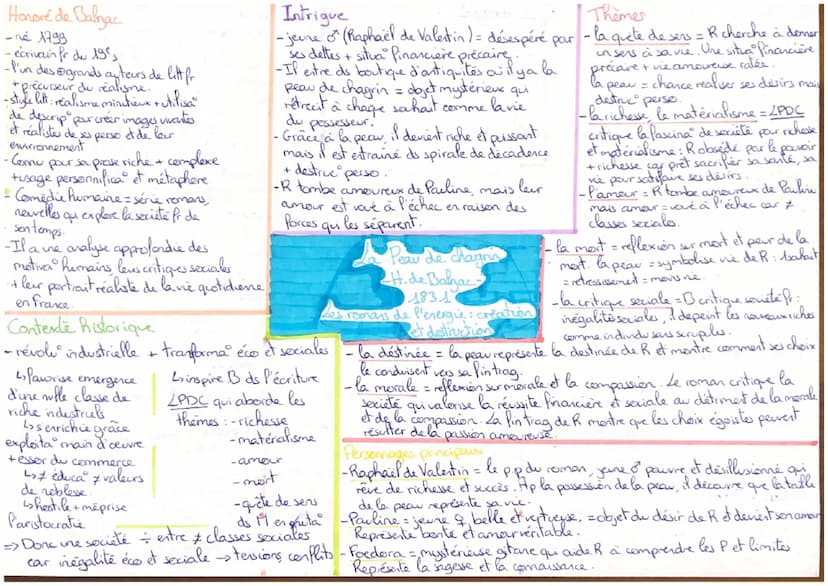 Honoré de Balzac
- né 1799
- écrivain fr du 19e s
- l'un des grands auteurs de litt fr
+ précurseur du réalisme.
- style litt: réalisme minutieux + utilisa°
de descrip° pour créer images vivantes
et réalistes de ses perso et de leur
environnement
- Connu pour sa prose riche + complexe
+ usage personnifica° et métaphore
= Comédie humaine = série romans,
nouvelles qui explore la société fr de
son temps.
- Il a une analyse approfondie des
motiva° humains, leurs critiques sociales
+ leur portrait réaliste de la vie quotidienne
en France.
Intrigue
- jeune ♂ (Raphaël de Valentin) = désespéré par
ses dettes + situa° financière précaire.
- Il entre ds boutique d'antiquités où il y a la
peau de chagrin = objet mystérieux qui
rétrécit à chaque souhait comme la vie
du possesseur.
- Grâce à la peau, il devient riche et puissant
mais il est entrainé ds spirale de décadence
+ destruc° perso.
- R tombe amoureux de Pauline, mais leur
amour est voué à l'échec en raison des
forces qui les séparent.
Thèmes
- la quête de sens = R cherche à donner
un sens à sa vie. Une situa° financière
précaire + vie amoureuse ratée.
la peau = chance réaliser ses désirs mais
destruc° perso.
- la richesse, le matérialisme = LPDC
critique la fascina° de société pour richesse
et matérialisme: R obsédé par le pouvoir
+ richesse car prêt sacrifier sa santé, sa
vie pour satisfaire ses désirs.
- l'amour = R tombe amoureux de Pauline
mais amour = voué à l'échec car ≠
classes sociales.
- la mort = réflexion sur mort et peur de la
mort. la peau = symbolise vie de R: 1 souhait
= rétrécissement = moins vie
- la critique sociale = B critique société fr:
inégalités sociales, il dépeint les nouveaux riches
comme individu sans scrupules.
La Peau de chagrin
- H. de Balzac -
1831
les romans de l'énergie: création
et destruction
- la déstinée = la peau représente la destinée de R et montre comment ses choix
le conduisent vers sa fin trag.
- la morale = réflexion sur morale et la compassion. Le roman critique la
société qui valorise la réussite financière et sociale au détriment de la morale
et de la compassion. La fin trag de R montre que les choix égoïstes peuvent
résulter de la passion amoureuse.
Contexte historique
- révolu° industrielle + transforma° éco et sociales
↳ favorise emergence
d'une nvlle classe de
riche industriels
↳ s'enrichie grâce
exploita° main d'oeuvre
+ essor du commerce
↳ ≠ éduca° ≠ valeurs
de noblesse.
↳ hostile + méprise
l'aristocratie
↳ inspire B ds l'écriture
LPDC qui aborde les
thèmes: - richesse
- matéralisme
- amour
- mort
- quête de sens
⇒ Donc une société ÷ entre ≠ classes sociales
car inégalité éco et sociale → tensions conflits
Personnages principaux
- Raphaël de Valentin = le p p du roman, jeune ♂ pauvre et désillusionné qui
rêve de richesse et succès. Ap la possession de la peau, il découvre que la taille
de la peau représente sa vie.
- Pauline = jeune ♀, belle et vertueuse, = objet du désir de R et devient son amour
Représente bonté et amour véritable.
- Foedora = mystérieuse gitane qui aide R à comprendre les P et limites
Représente la sagesse et la connaissance.